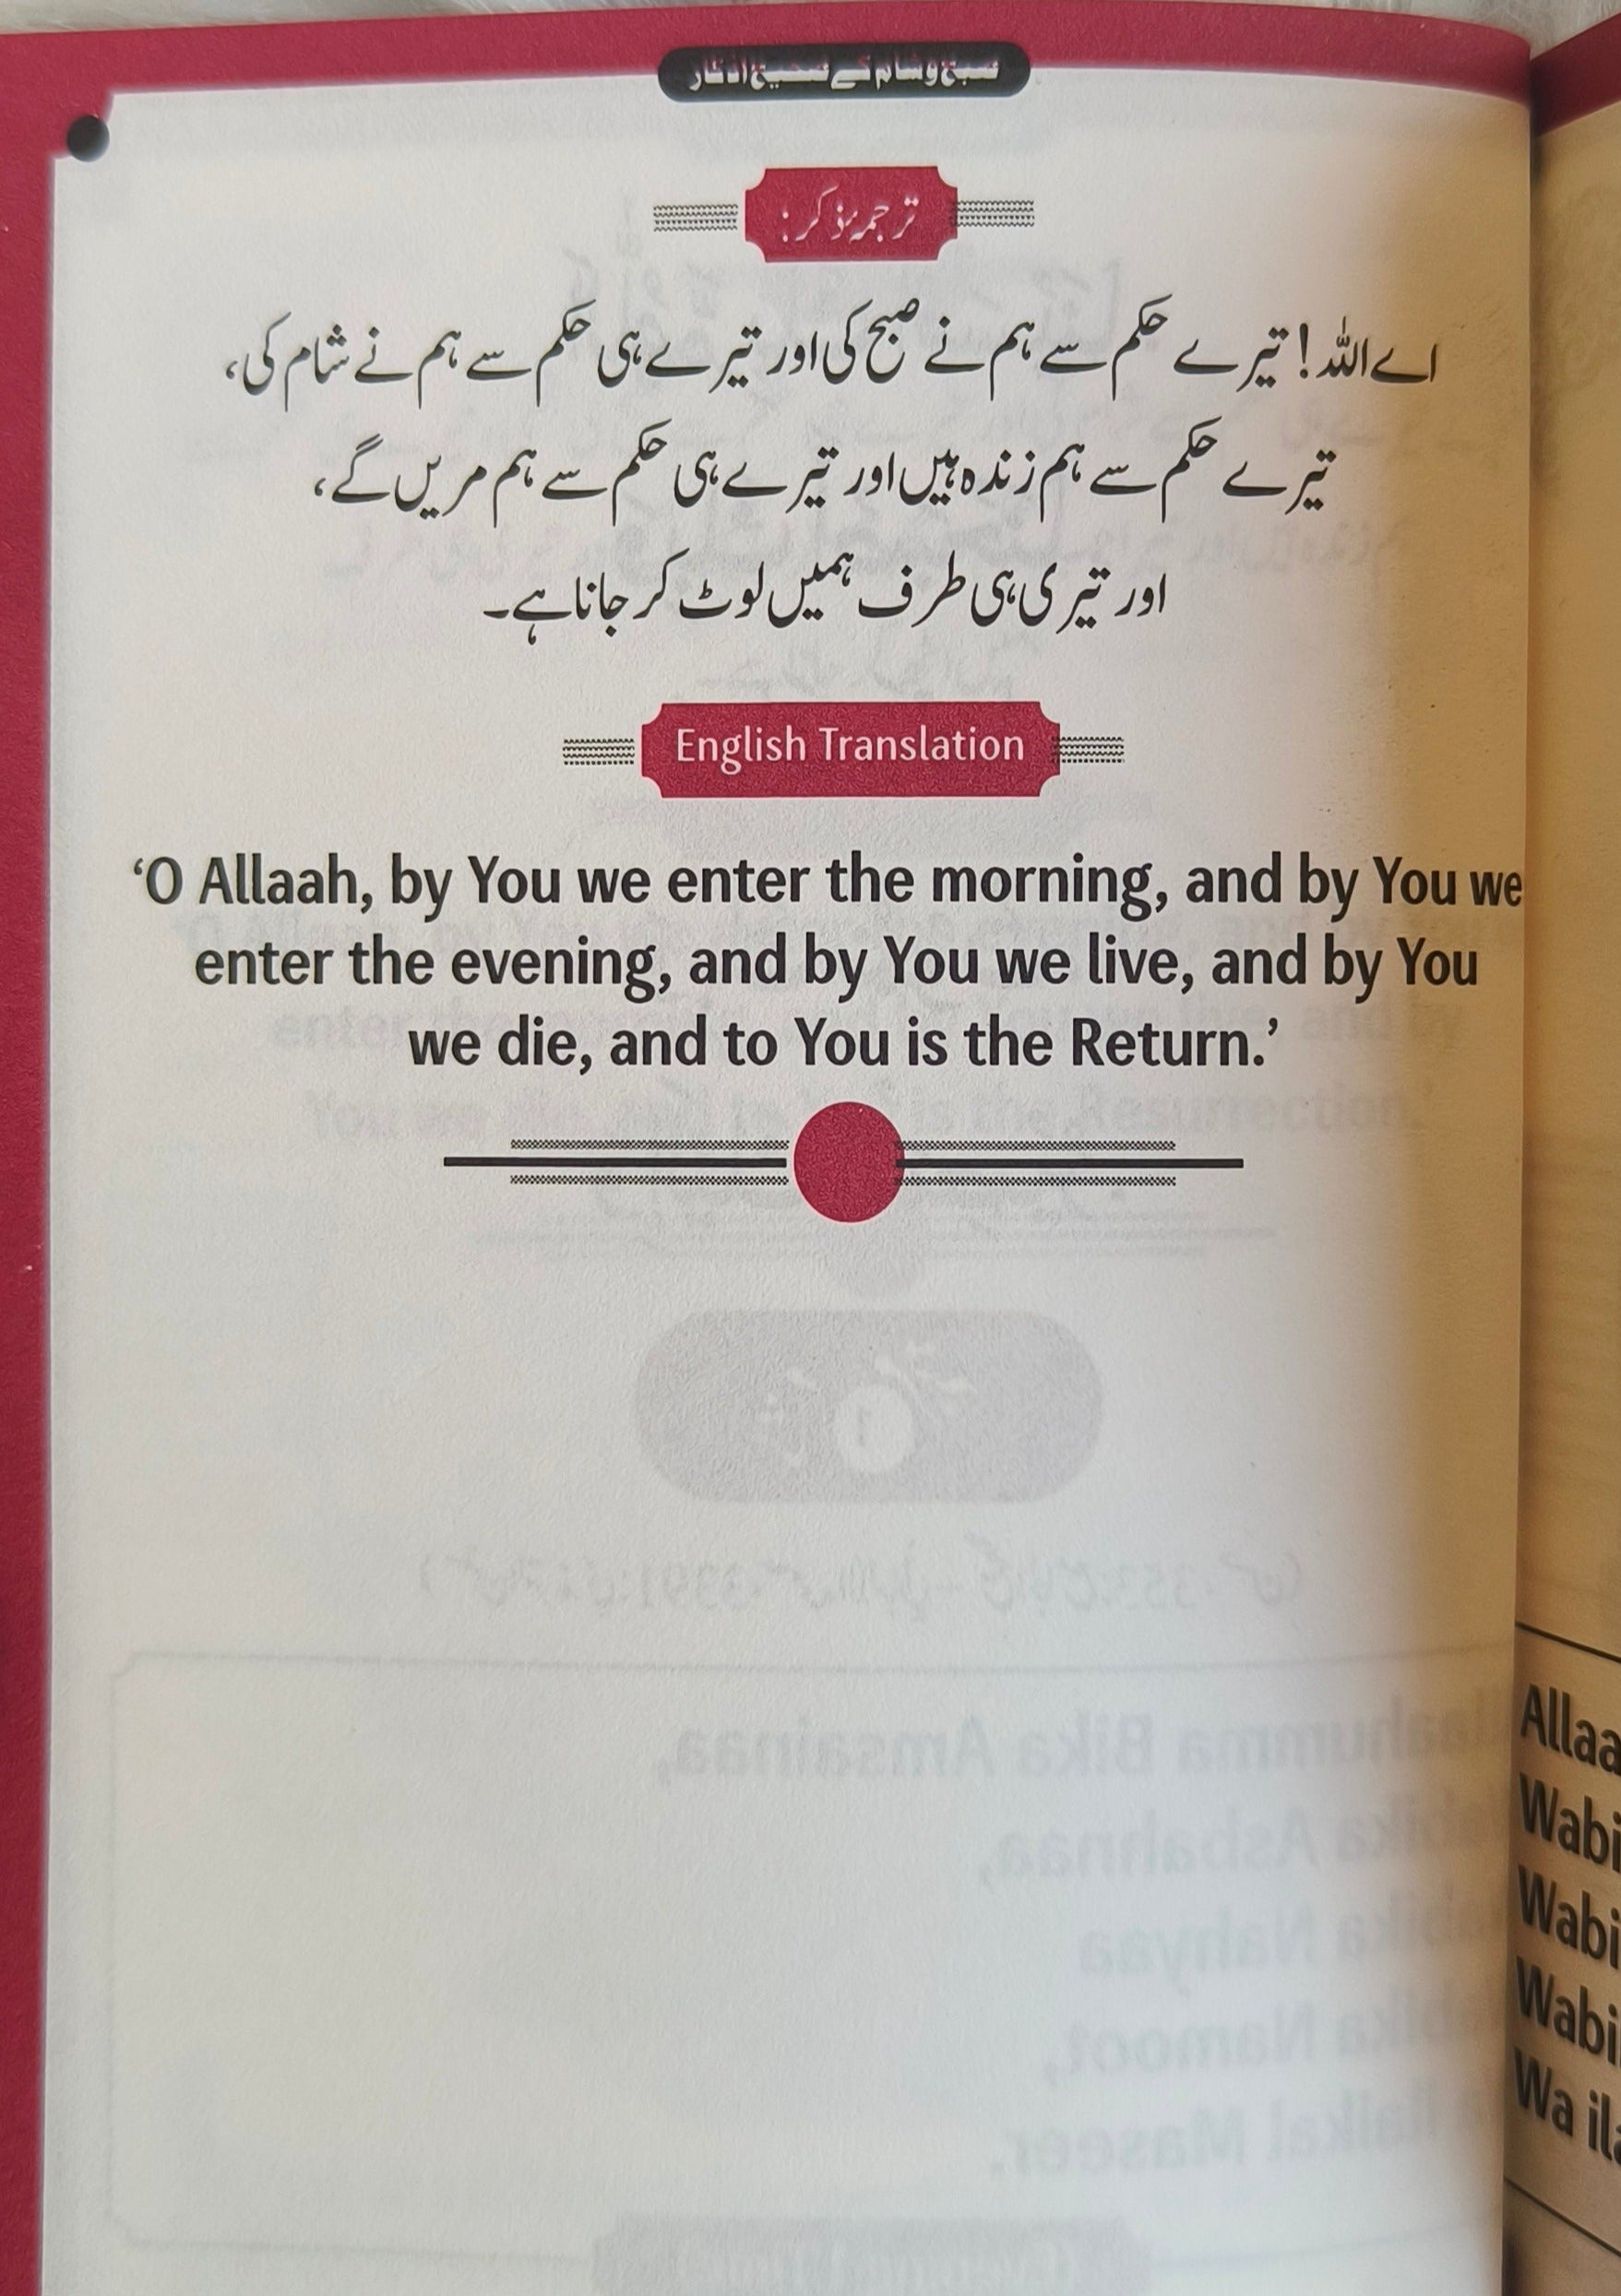 صبح و شام کے صحیح اذکار
ترجمۂ ذکر:
اے اللہ! تیرے حکم سے ہم نے صبح کی اور تیرے ہی حکم سے ہم نے شام کی،
تیرے حکم سے ہم زندہ ہیں اور تیرے ہی حکم سے ہم مریں گے،
اور تیری ہی طرف ہمیں لوٹ کر جانا ہے۔
English Translation
‘O Allaah, by You we enter the morning, and by You we
enter the evening, and by You we live, and by You
we die, and to You is the Return.’
Allaa
Wabi
Wabi
Wabi
Wa ila